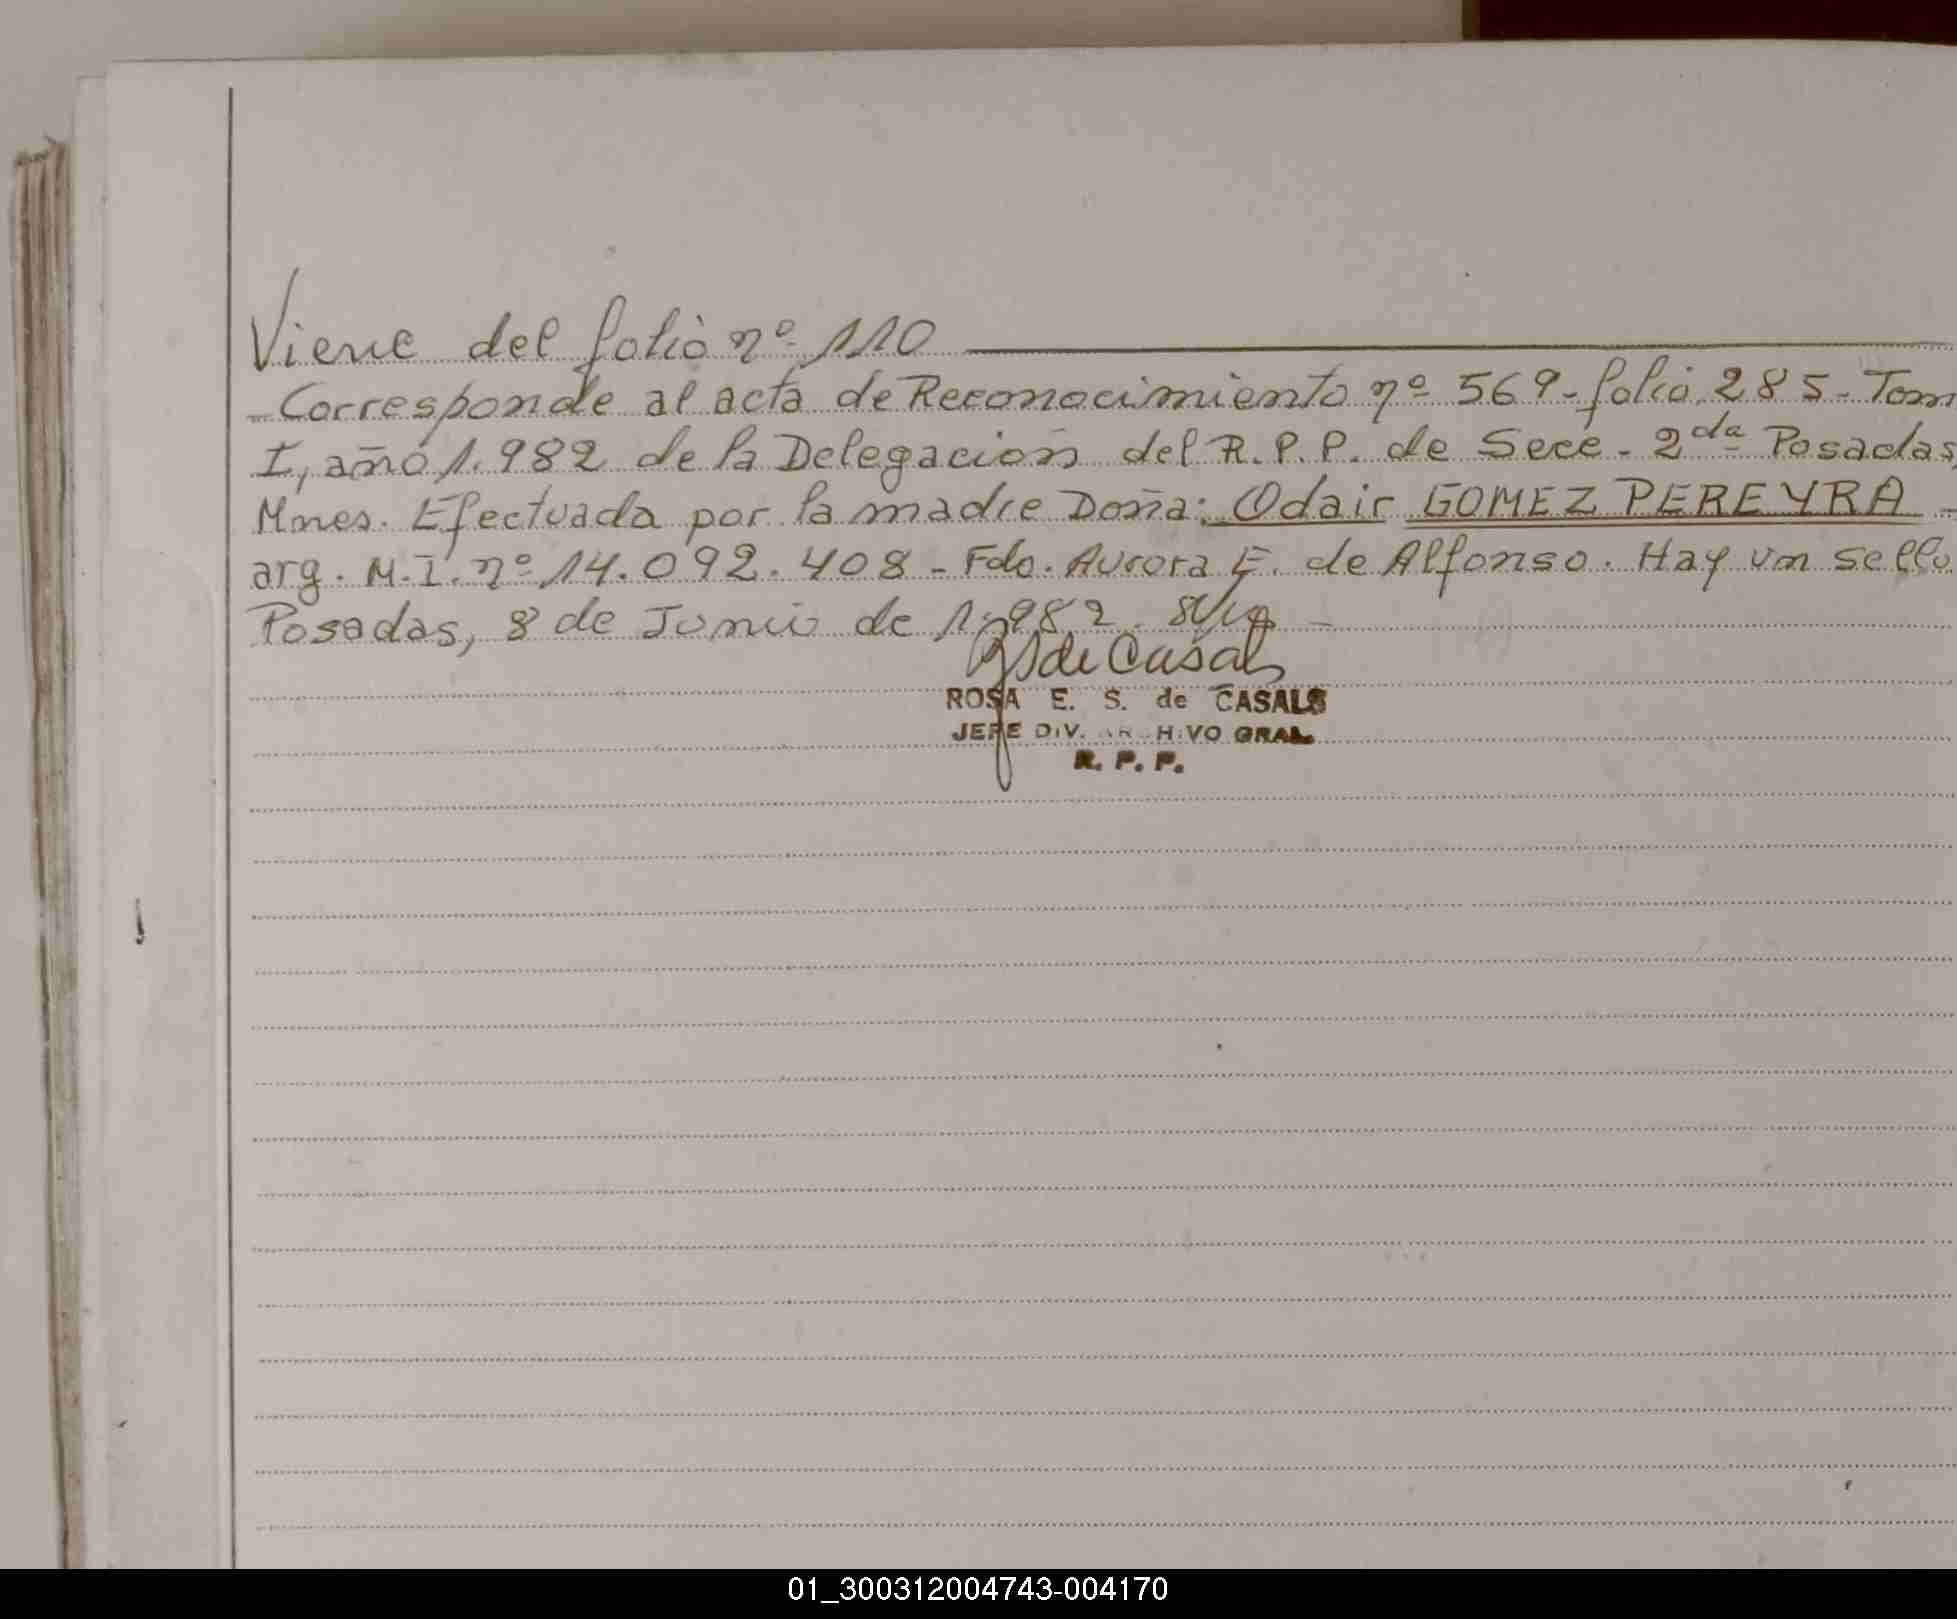 Viene del folio nº 110
- Corresponde al acta de Reconocimiento nº 569 - folio 285 - Tom
I, año 1.982 de la Delegación del R.P.P. de Secc. 2da Posadas,
Mnes. Efectuada por la madre Doña: Odair GOMEZ PEREYRA -
arg. M.I. nº 14.092.408 - Fdo. Aurora E. de Alfonso. Hay un sello
Posadas, 8 de Junio de 1.982.
de Casals
ROSA E. S. de CASALS
JEFE DIV. ARCHIVO GRAL.
R. P. P.
01_300312004743-004170